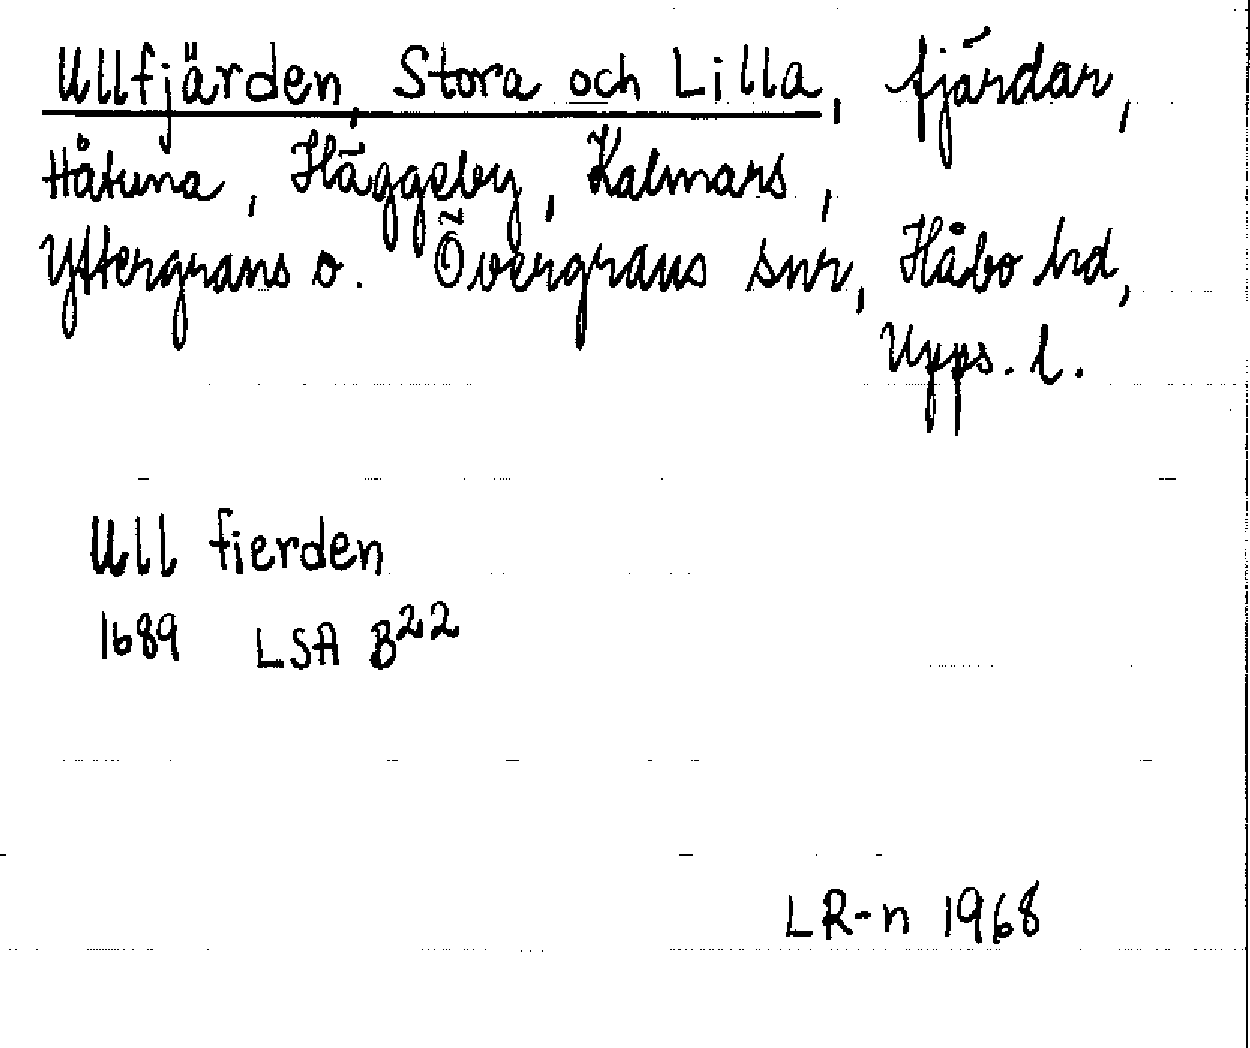 Ullfjärden, Stora och Lilla, fjärdar,
Håtuna, Häggeby, Kalmars,
Yttergrans o. Övergrans snr, Håbo hd,
Upps. l.
Ull fierden
1689 LSA B22
LR-n 1968